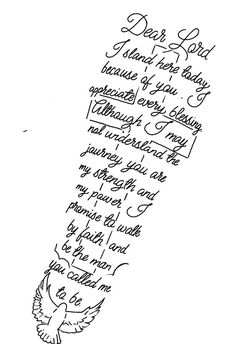 Dear Lord
I stand here today
because of you. I
appreciate every blessing
Although I may
not understand the
journey you are
my strength and
my power. I
promise to walk
by faith and
be the man
you called me
to be